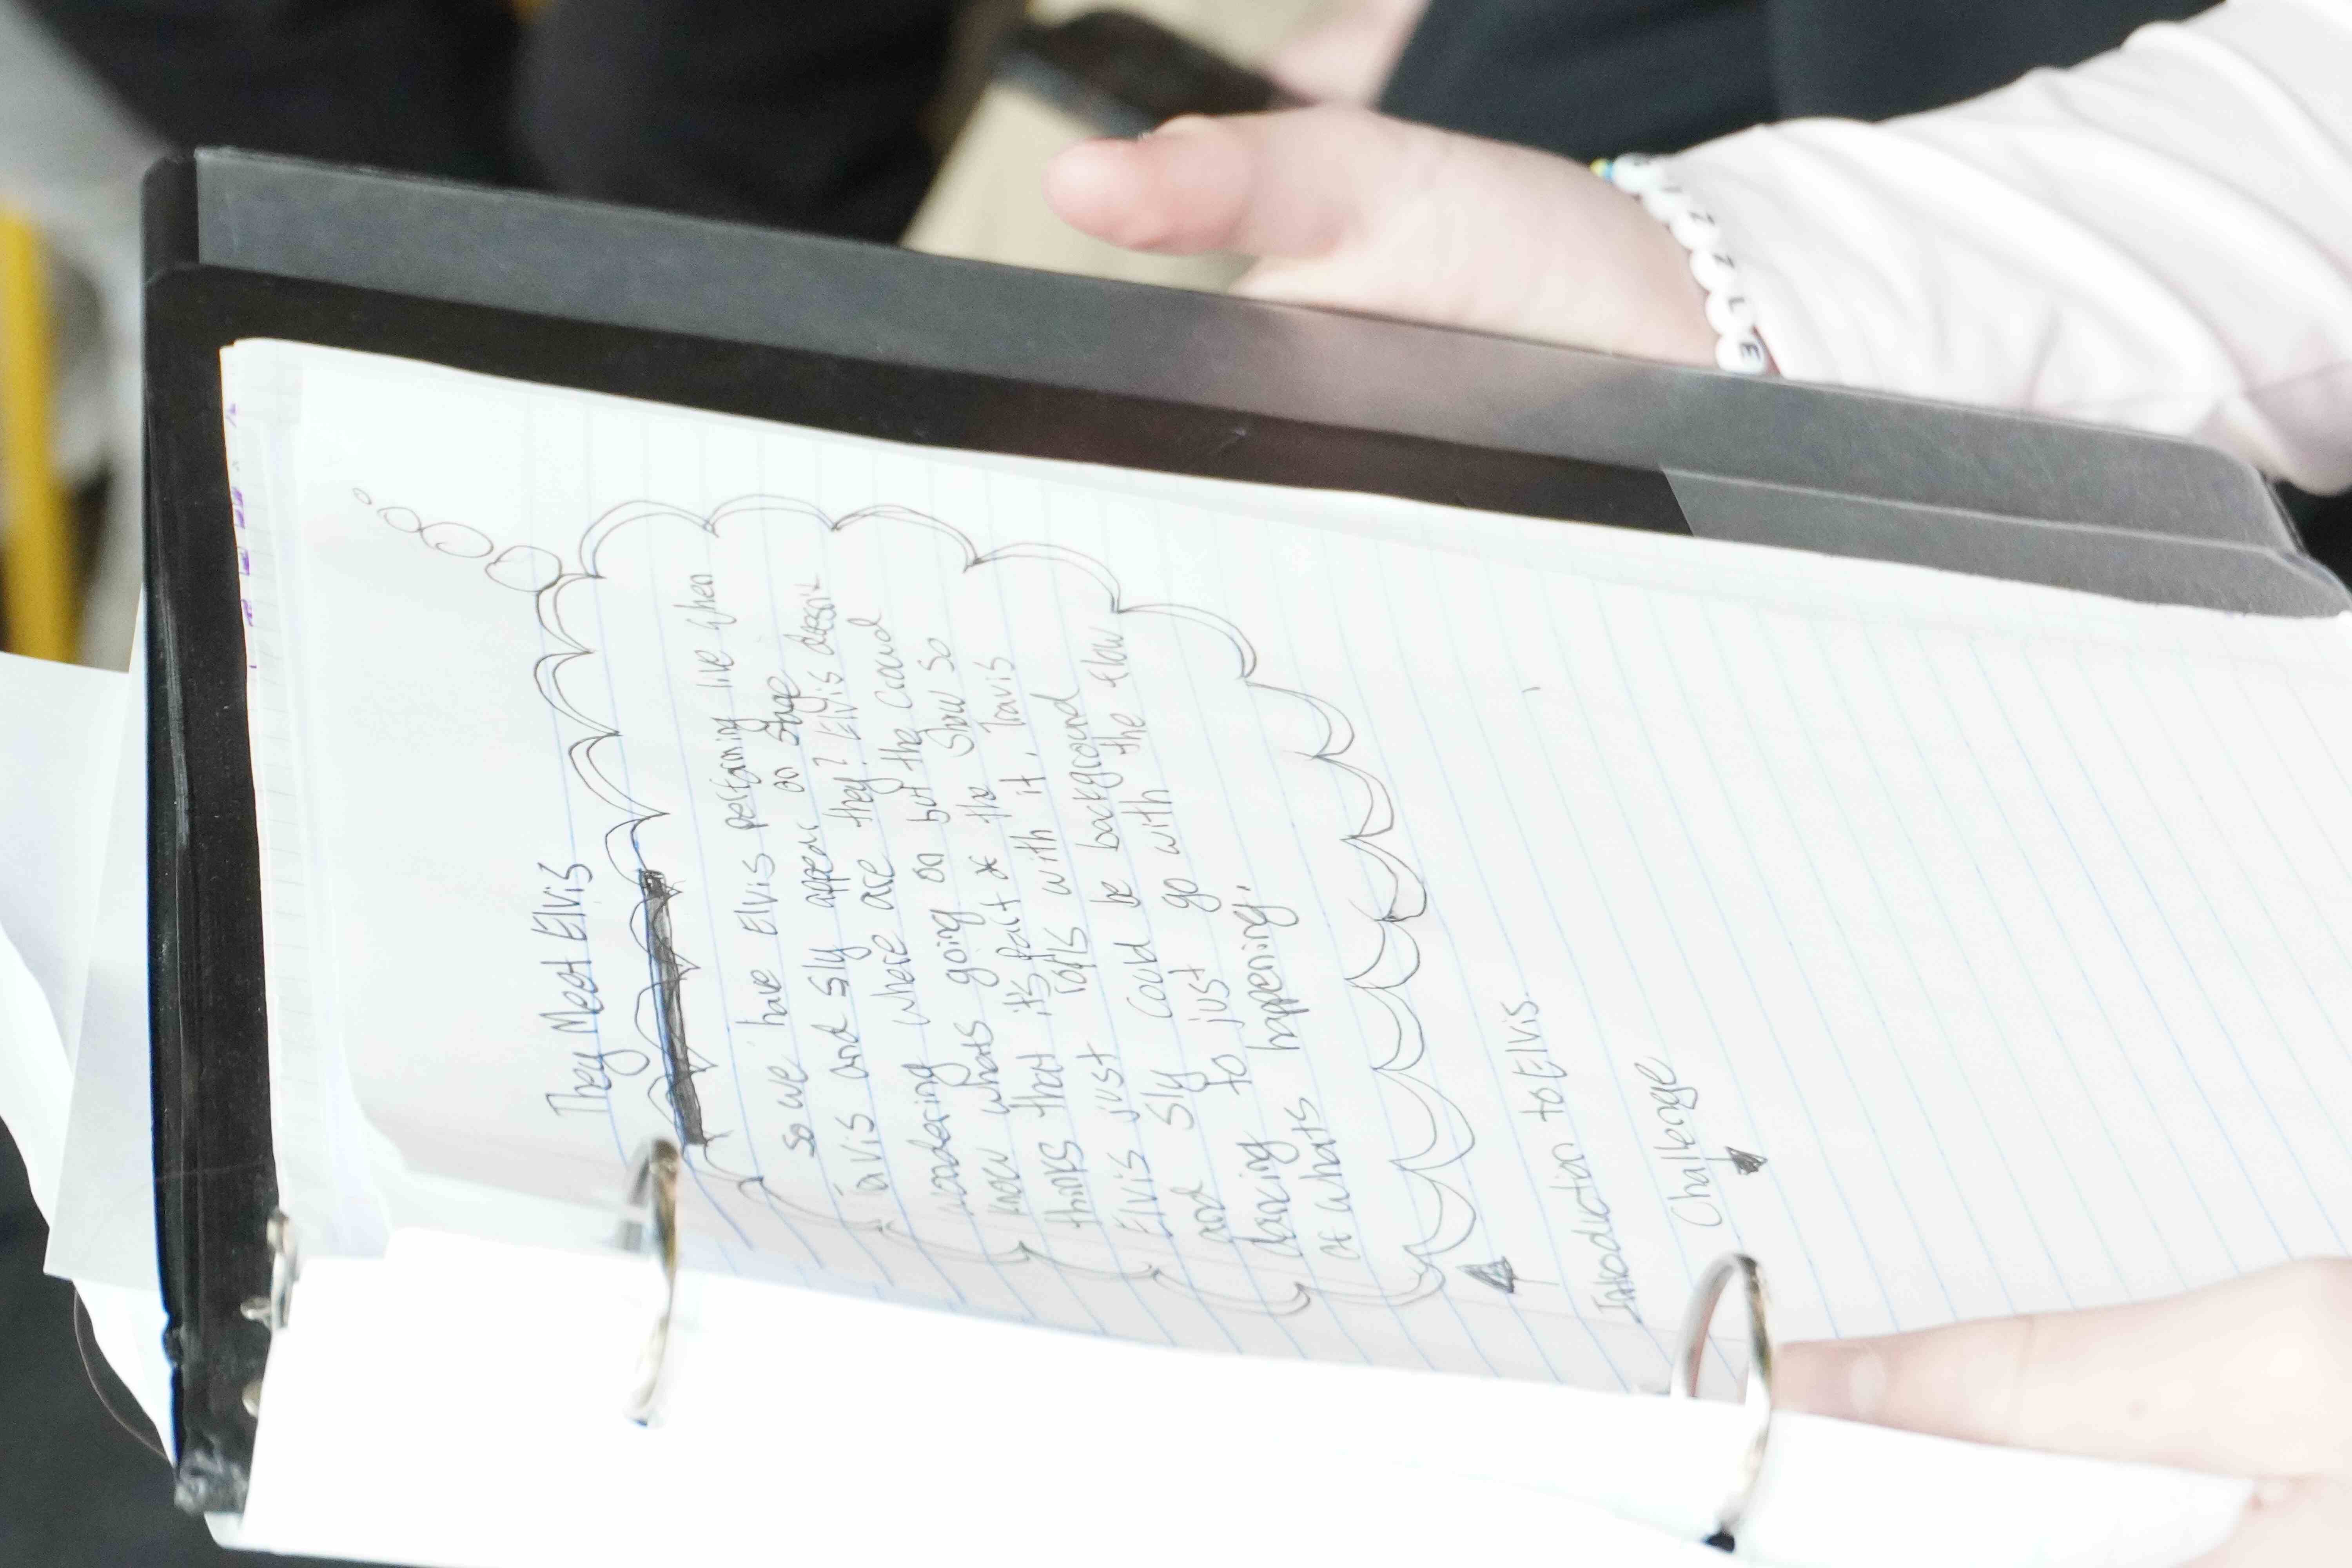 They Meet Elvis
so we have Elvis performing live when
Travis and Sly appear on stage
wondering where are they? Elvis doesn't
know whats going on but the crowd
thinks that it's part of the show so
Elvis just rolls with it. Travis
and Sly could be background
dancing to just go with the flow
of whats happening.
Introduction to Elvis.
Challenge
IZZLE